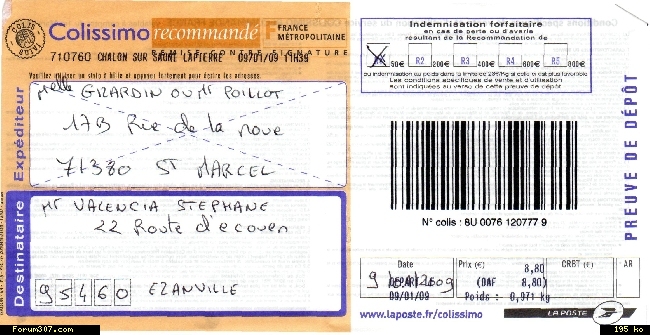 Colissimo recommandé F FRANCE MÉTROPOLITAINE
REMISE CONTRE SIGNATURE
710760 CHALON SUR SAONE LAFTERRE 09/01/09 11H39
Expéditeur
Melle GIRARDIN OU Mr POILLOT
17B Rue de la noue
71380 ST MARCEL
Destinataire
Mr VALENCIA STEPHANE
22 Route d'ecouen
95460 EZANVILLE
Forum307.com
Indemnisation forfaitaire
en cas de perte ou d'avarie
résultant de la Recommandation de
50€ R2 200€ R3 400€ R4 600€ R5 800€
ou indemnisation au poids dans la limite de 23€/kg si celle-ci est plus favorable
Les conditions spécifiques de vente et d'utilisation
sont indiquées au verso de cette preuve de dépôt
N° colis : 8U 0076 120777 9
PREUVE DE DÉPÔT
Date Prix (€) 8,80 CRBT (€) AR
DEPART LE (DAF 8,80)
09/01/09 Poids : 0,971 kg
www.laposte.fr/colissimo LA POSTE
195 ko